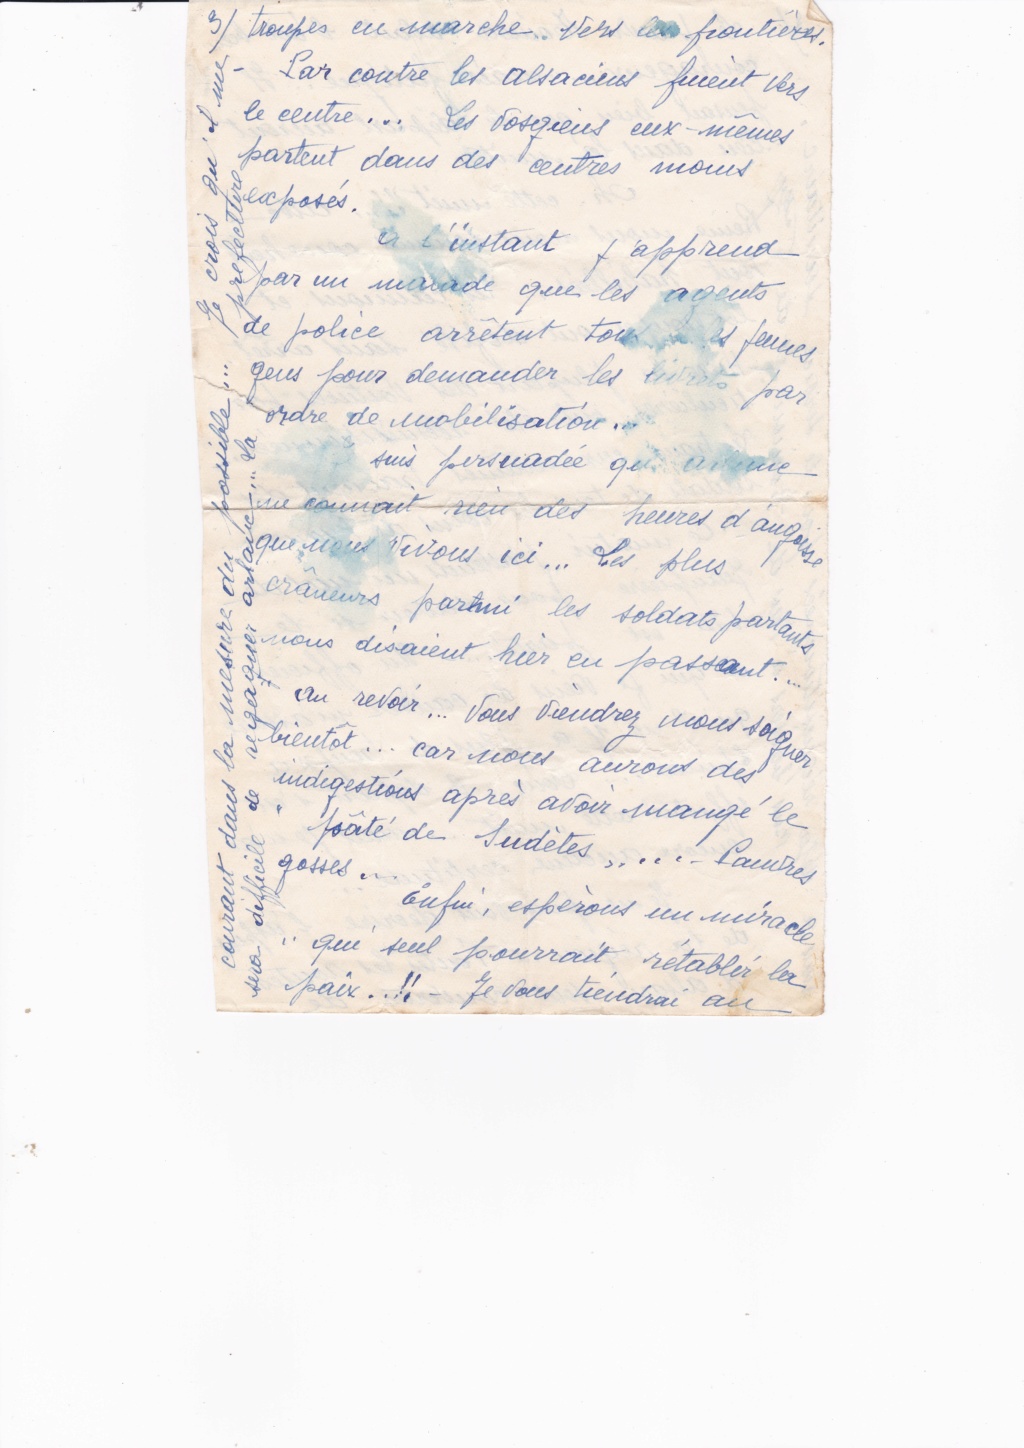 3/ troupes en marche. Vers les frontières.
- Par contre les alsaciens fuient vers
le centre... Les Vosgiens eux-mêmes
partent dans des centres moins
exposés.
à l'instant j'apprend
par un malade que les agents
de police arrêtent tous les jeunes
gens pour demander les livrets par
ordre de mobilisation...
suis persuadée qu'
ne connait rien des heures d'angoisse
que nous vivons ici... Les plus
crâneurs parmi les soldats partants
nous disaient hier en passant....
au revoir... Vous viendrez nous soigner
bientôt... car nous aurons des
indigestions après avoir mangé le
" pâté de Sudètes ,....- Pauvres
gosses...
Enfin, espérons un miracle
" qui seul pourrait rétablir la
paix..!! - Je vous tiendrai au
courant dans la mesure du possible... Je crois qu'il me
sera difficile de regagner arlanc.... La préfecture